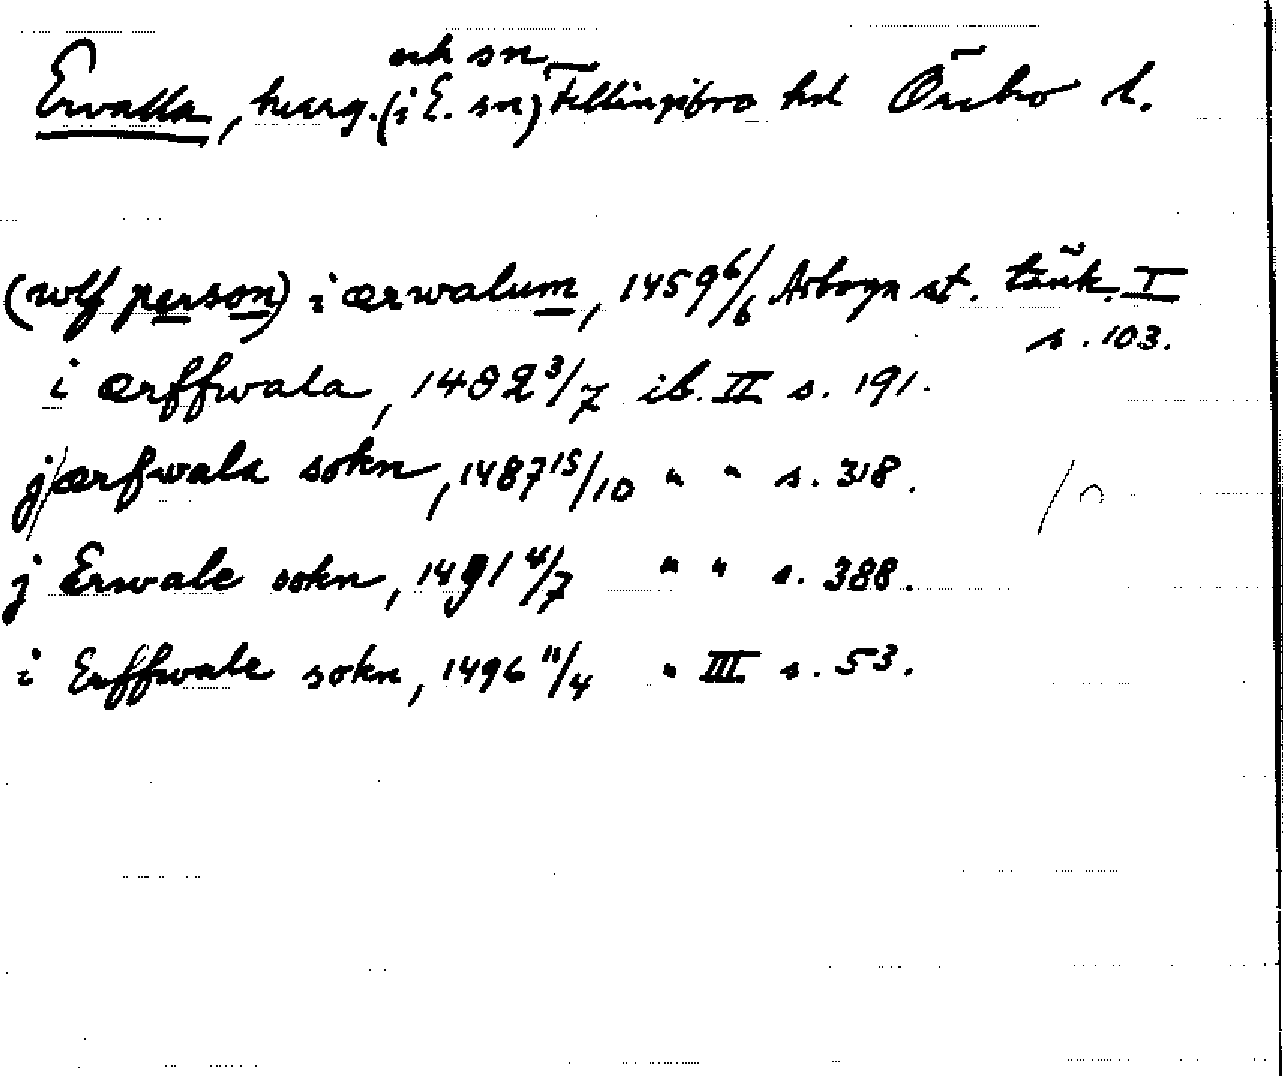 och sn
Ervalla, herrg. (i E. sn) Fellingsbro hd Örebro l.
(wlf person) i ærwalum, 1459 6/6 Arboga st. tänk. I
s. 103.
i ærffwala, 1482 3/7 ib. II s. 191.
j ærfwala sokn, 1487 15/10 " " s. 318.
j Erwale sokn, 1491 4/7 " " s. 388.
i Erffwale sokn, 1496 11/4 " III s. 53.